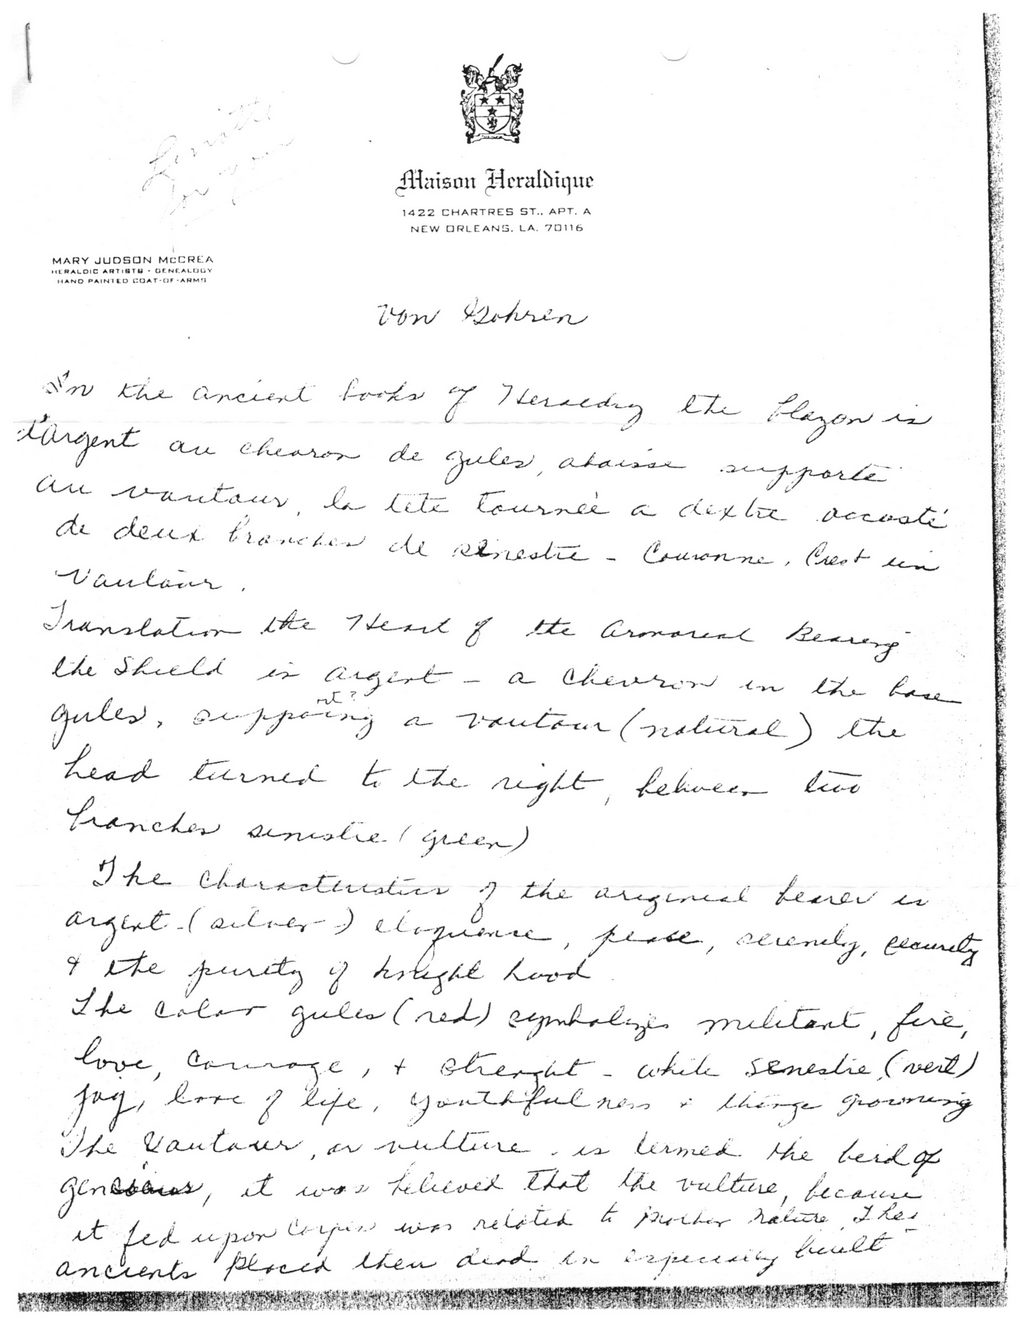 Maison Heraldique
1422 CHARTRES ST., APT. A
NEW ORLEANS, LA. 70116
for you
MARY JUDSON McCREA
HERALDIC ARTISTS - GENEALOGY
HAND PAINTED COAT-OF-ARMS
von Gohren
In the ancient books of Heraldry the blazon is
d'Argent au chevron de gules, abaisse supporte
au vautour, la tete tournée a dextre accosté
de deux branches de senestre - Couronne, Crest un
Vautour.
Translation the Head of the Armorial Bearing
the Shield is argent - a chevron in the base
gules, supporting a vautour (natural) the
head turned to the right, between two
branches sinistre (green)
The characteristics of the original bearer is
argent - (silver -) eloquence, peace, serenity, security
& the purity of knight hood
The color gules (red) symbolizes militant, fire,
love, courage, + strenght - while senestre, (vert)
joy, love of life, youthfulness & things growing
The Vautour, or vulture, is termed the bird of
it was believed that the vulture, because
it fed upon corpses was related to Mother Nature. The
ancients placed their dead in especially built